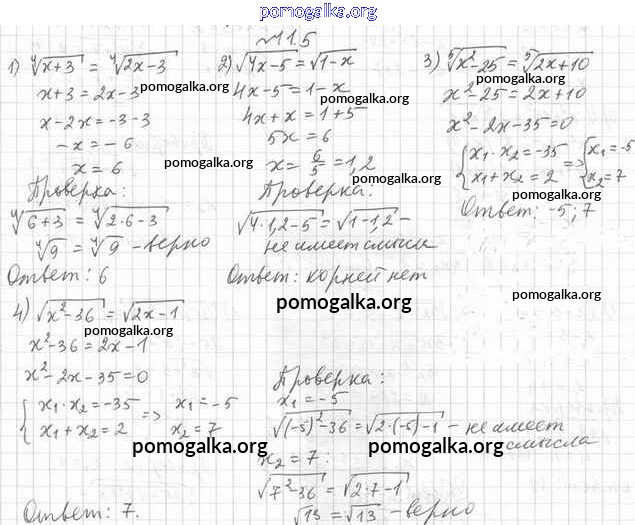 pomogalka.org
N 11.5
1) ∜(x+3) = ∜(2x-3)
x+3 = 2x-3
x-2x = -3-3
-x = -6
x = 6
Проверка:
∜(6+3) = ∜(2·6-3)
∜9 = ∜9 - верно
Ответ: 6
2) √(4x-5) = √(1-x)
4x-5 = 1-x
4x+x = 1+5
5x = 6
x = 6/5 = 1,2
Проверка:
√(4·1,2-5) = √(1-1,2) -
не имеет смысла
Ответ: корней нет
3) ⁵√(x²-25) = ⁵√(2x+10)
x²-25 = 2x+10
x²-2x-35=0
{x₁·x₂=-35 => {x₁=-5
{x₁+x₂=2 {x₂=7
Ответ: -5; 7
4) √(x²-36) = √(2x-1)
x²-36 = 2x-1
x²-2x-35=0
{x₁·x₂=-35 => x₁=-5
{x₁+x₂=2 x₂=7
Проверка:
x₁=-5
√((-5)²-36) = √(2·(-5)-1) - не имеет
смысла
x₂=7:
√(7²-36) = √(2·7-1)
√13 = √13 - верно
Ответ: 7.
pomogalka.org
pomogalka.org
pomogalka.org
pomogalka.org
pomogalka.org
pomogalka.org
pomogalka.org
pomogalka.org
pomogalka.org
pomogalka.org
pomogalka.org